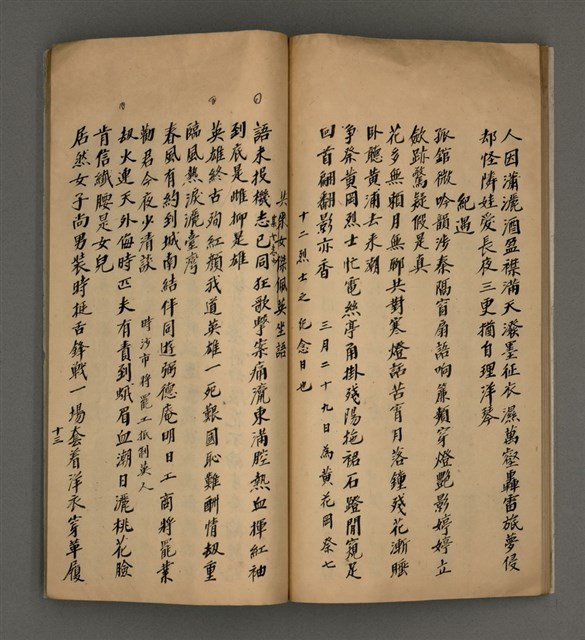 人因瀟灑酒盈襟滿天潑墨征衣濕萬壑轟雷旅夢侵
却怪隣娃愛長夜三更猶自理洋琴
紀遇
孤館微吟韻涉秦隔窗扇語响簾頻穿燈艷影婷婷立
歛跡驚疑假是真
花多無賴月無聊共對寒燈話苦宵月落鐘殘花漸睡
卧聽黄浦去來潮
爭祭黄岡烈士忙電絲亭角掛殘陽拖裙石蹬閒窺足
回首翩翩影亦香
三月二十九日為黄花岡祭七
十二烈士之紀念日也
共康女傑佩英坐語
語未投機志已同狂歌擊案痛流東滿腔熱血揮紅袖
到底是雌抑是雄
英雄終古殉紅顏我道英雄一死艱國恥難酬情劫重
臨風熱淚灑臺灣
春風有約到城南結伴同遊弥德庵明日工商將罷業
勸君今夜少清談
時沙市將罷工抵制英人
劫火連天外侮時匹夫有責到蛾眉血潮日灑桃花臉
肯信纖腰是女兒
居然女子尚男裝時挺舌鋒戰一場套着洋衣穿革履
十三